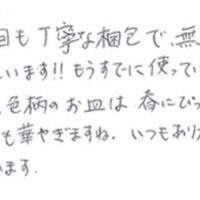 回も丁寧な梱包で、無
います!!もうすでに使ってい
色柄のお皿は春にぴっ
も華やぎますね. いつもあり
います.